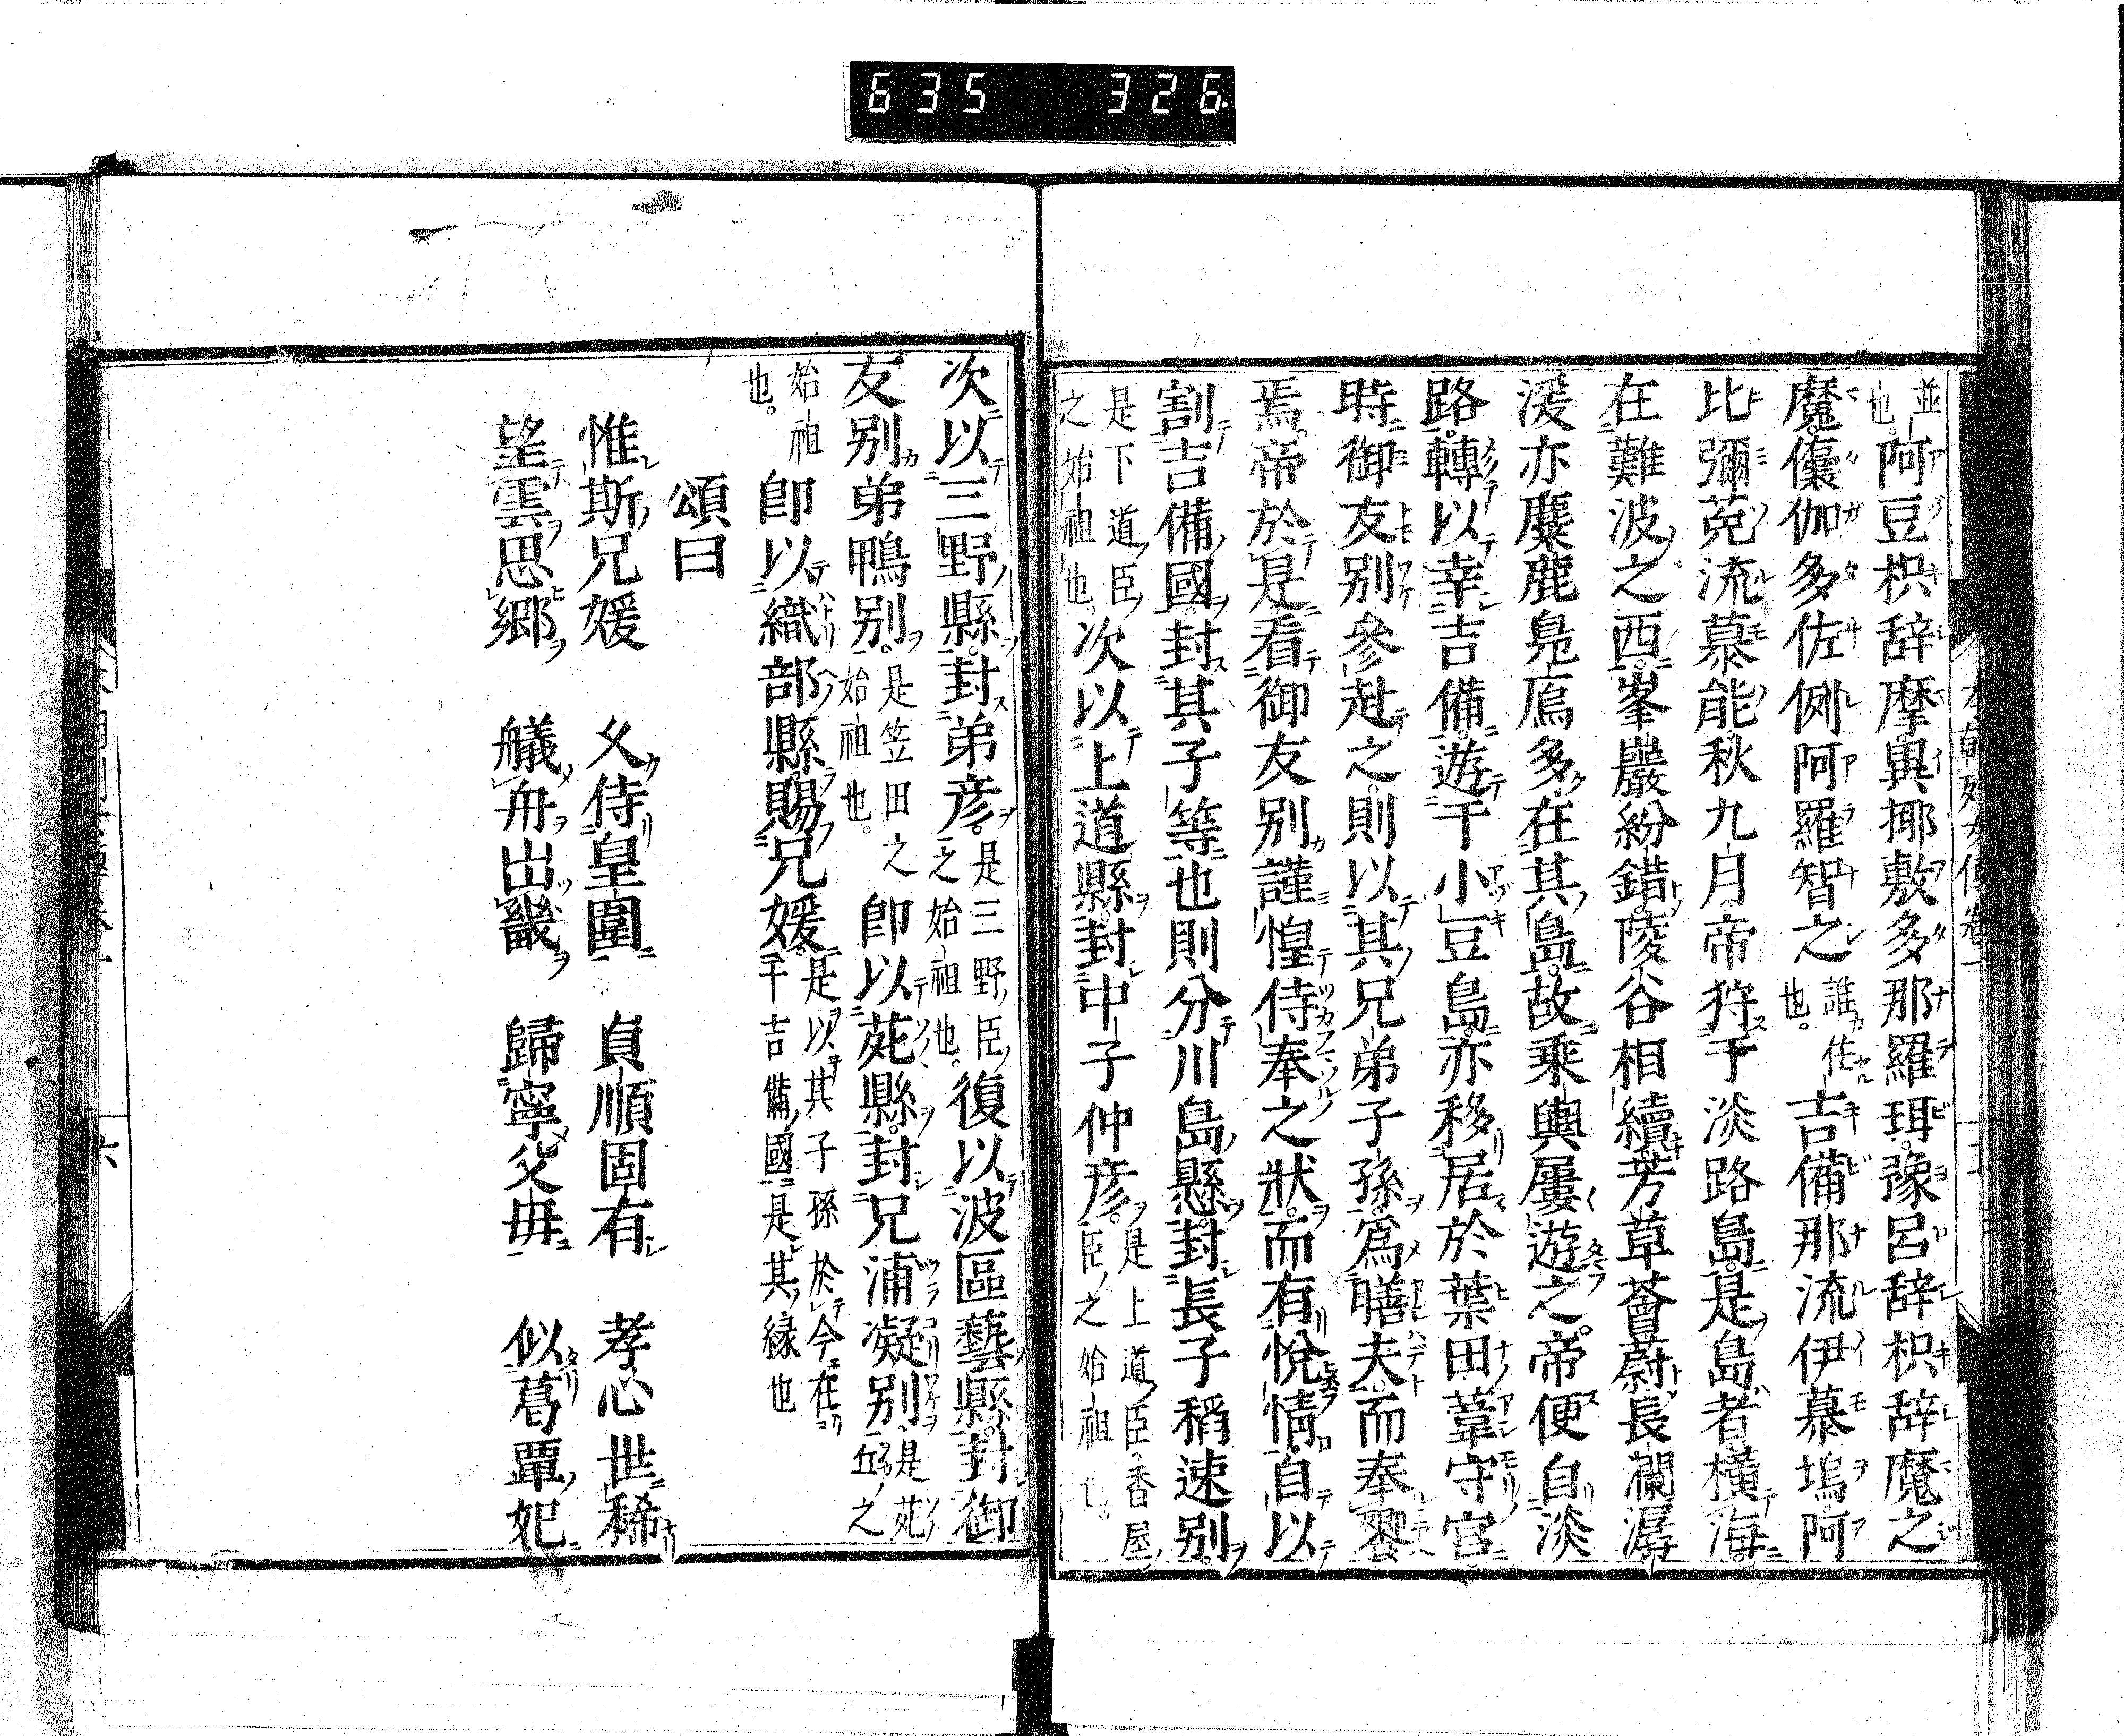 635 326
並也。阿豆枳辞摩。異揶敷多那羅珥。豫呂辞枳辞魔之
魔。儾伽多佐例阿羅智之誰カ仕也。吉備那流伊慕塢阿
比彌菟流慕能。秋九月。帝狩于淡路島。是島者橫海。
在難波之西。峯巖紛錯。陵谷相續。芳草薈蔚。長瀾潺
湲。亦麋鹿鳧鴈多在其島。故乘輿屢遊之。帝便自淡
路。轉以幸吉備。遊于小豆島。亦移居於葉田葦守宮。
時御友別參赴之。則以其兄弟子孫。爲膳夫。而奉饗
焉。帝於是看御友別謹惶侍奉之狀。而有悅情。自以
割吉備國。封其子等也。則分川島縣。封長子稻速別。
是下道臣之始祖也。次以上道縣。封中子仲彦。是上道臣。香屋臣之始祖也。
次以三野縣。封弟彦。是三野臣之始祖也。復以波區藝縣。封御
友別弟鴨別。是笠田之始祖也。卽以苑縣。封兄浦凝別。是苑丘之
始祖也。卽以織部縣。賜兄媛。是以其子孫於今在于吉備國。是其緣也
頌曰
惟斯兄媛 父侍皇圍 貞順固有 孝心世稀
望雲思郷 艤舟出畿 歸寧父母 似葛覃妃
六